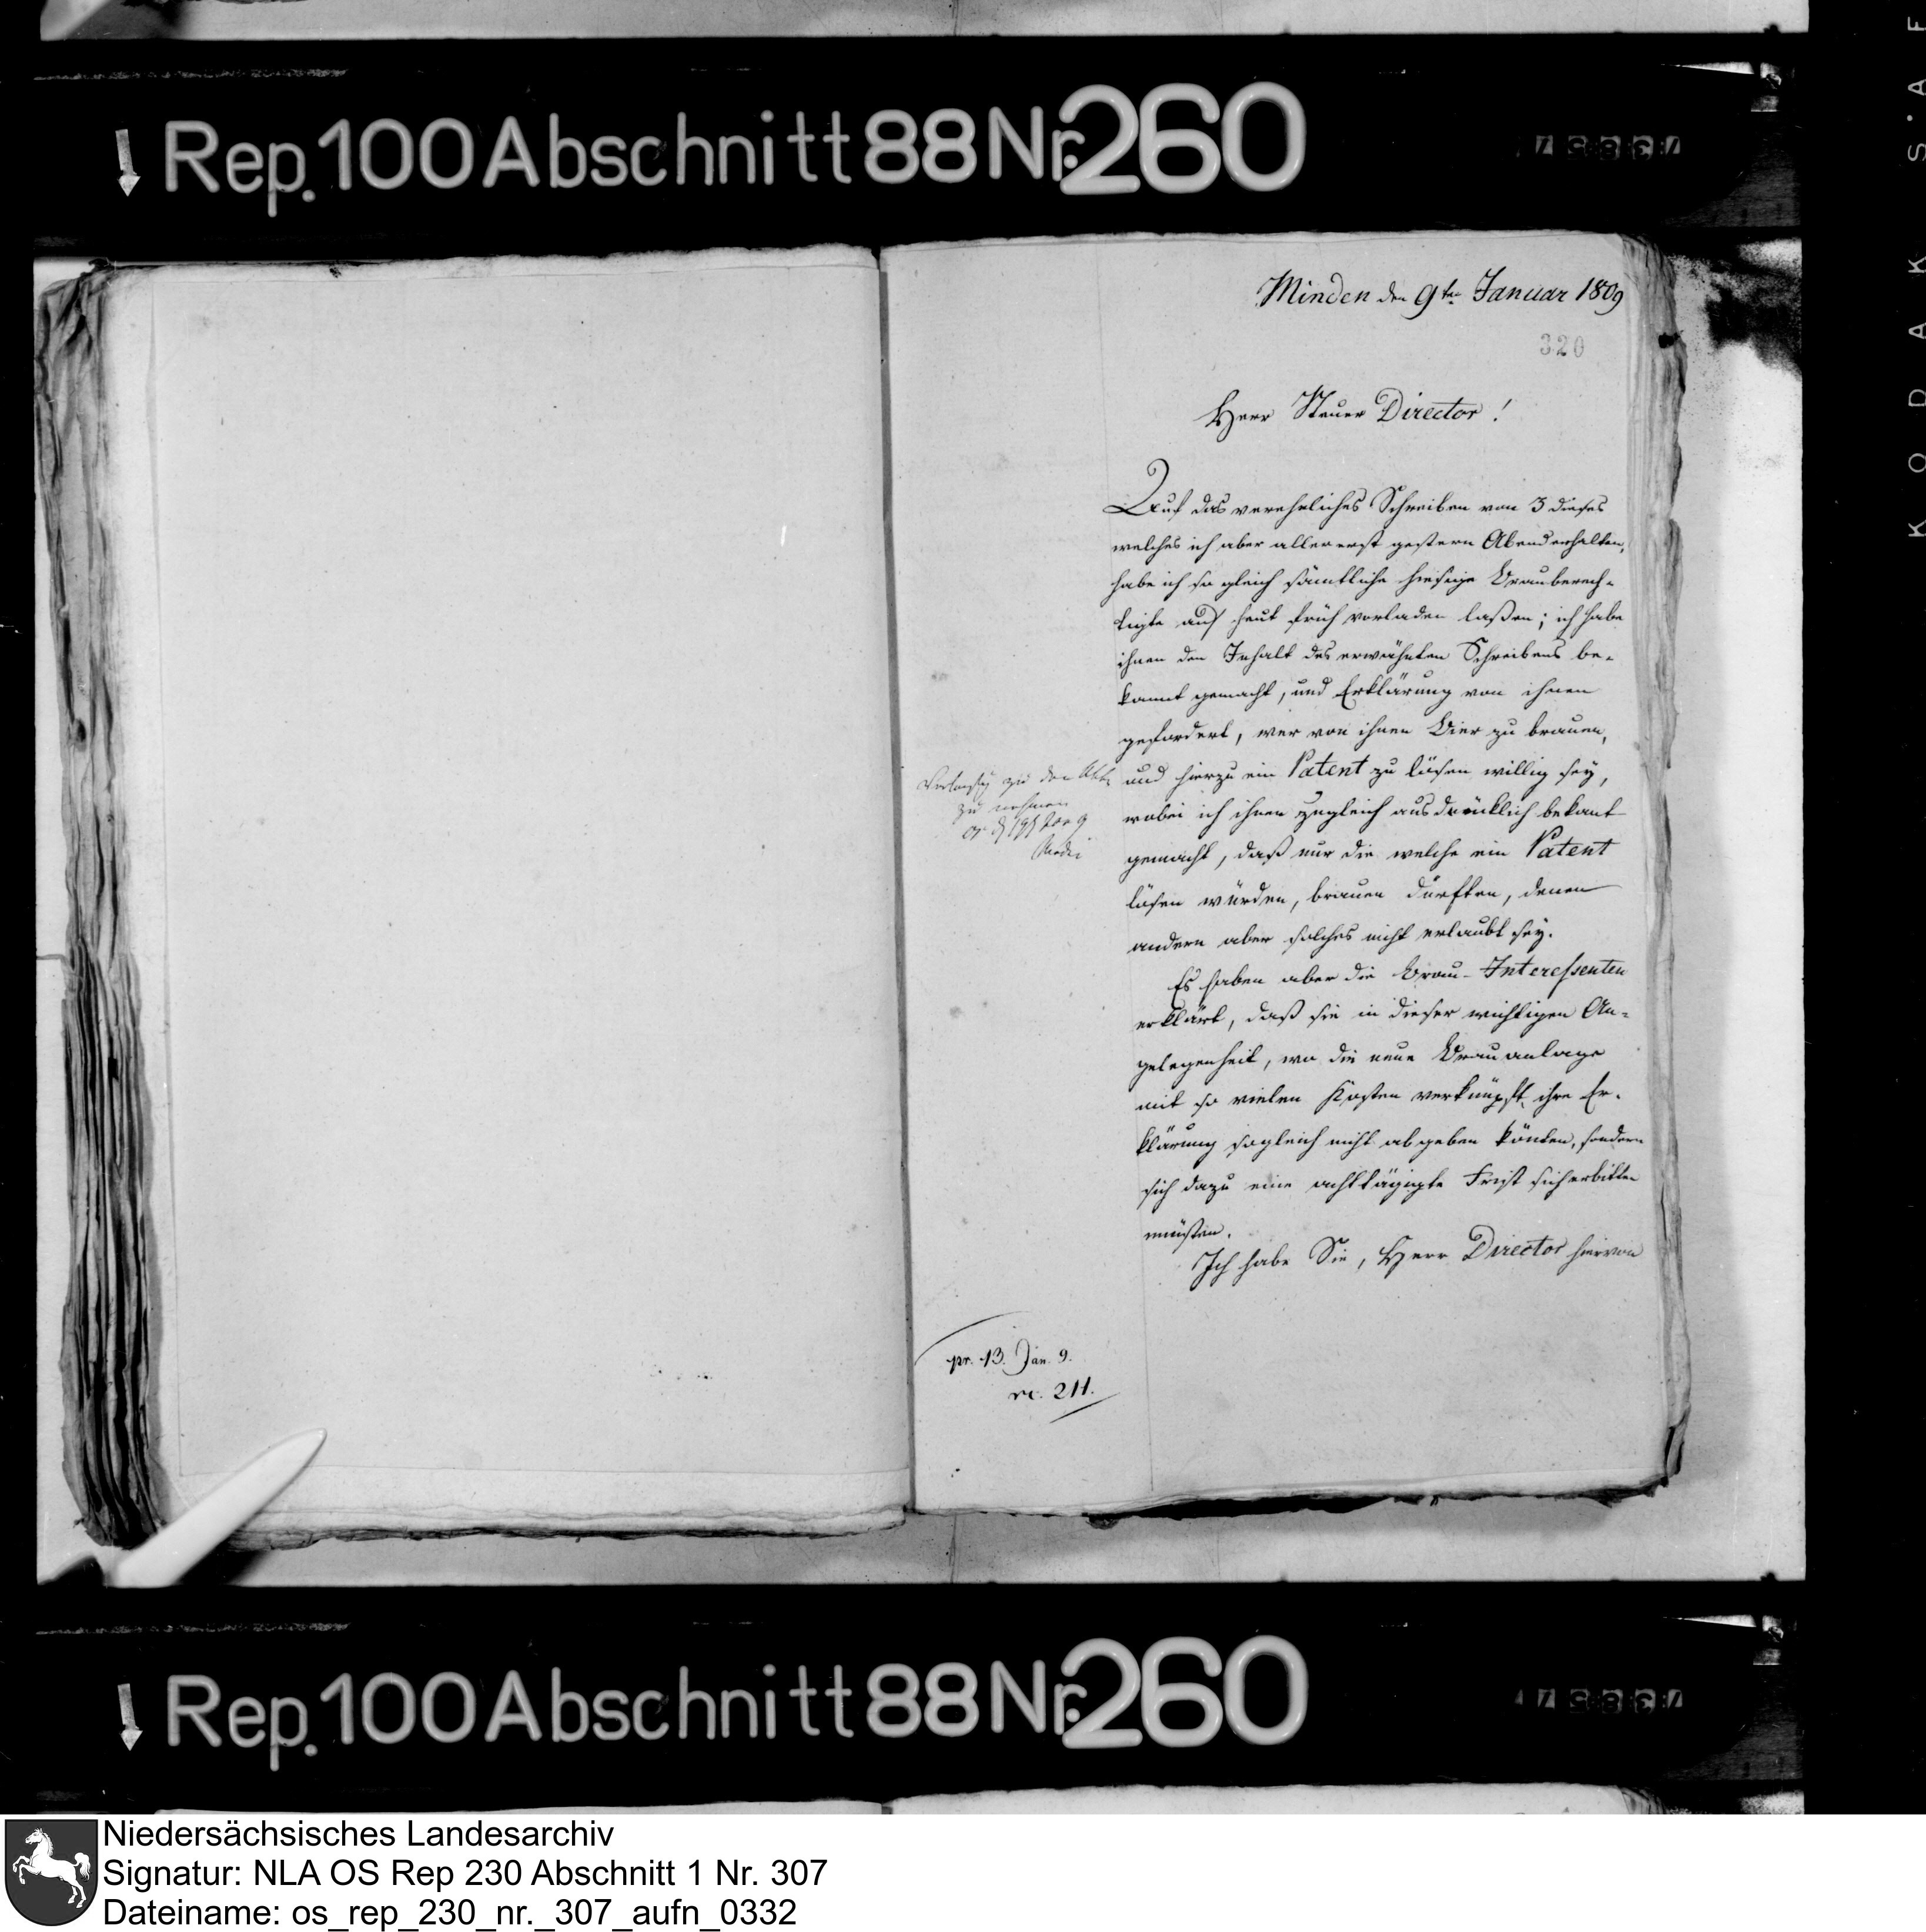 Rep. 100 Abschnitt 88 Nr. 260
Minden den 9ten Januar 1809
320
Herr Steuer Director!
Auf das verehrliches Schreiben vom 3 dieses
welches ich aber allererst gestern Abend erhalten,
habe ich so gleich sämtliche hiesige Brauberech-
tigte auf heut früh vorladen laßen; ich habe
ihnen den Inhalt des erwähnten Schreibens be-
kannt gemacht, und Erklärung von ihnen
gefordert, wer von ihnen Bier zu brauen,
und hierzu ein Patent zu lösen willig sey,
wobei ich ihnen zugleich ausdrücklich bekant
gemacht, daß nur die welche ein Patent
lösen würden, brauen dürften, denen
andern aber solches nicht erlaubt sey.
Es haben aber die Brau-Interessenten
erklärt, daß sie in dieser wichtigen An-
gelegenheit, wo die neue Brauanlage
mit so vielen Kosten verknüpft, ihre Er-
klärung sogleich nicht abgeben könten, sondern
sich dazu eine achttägigte Frist sich erbitten
müsten.
Ich habe Sie, Herr Director hiervon
zu den
zu nehmen
pr. 13. Jan. 9.
211.
Rep. 100 Abschnitt 88 Nr. 260
KODAK S.AF
Niedersächsisches Landesarchiv
Signatur: NLA OS Rep 230 Abschnitt 1 Nr. 307
Dateiname: os_rep_230_nr._307_aufn_0332